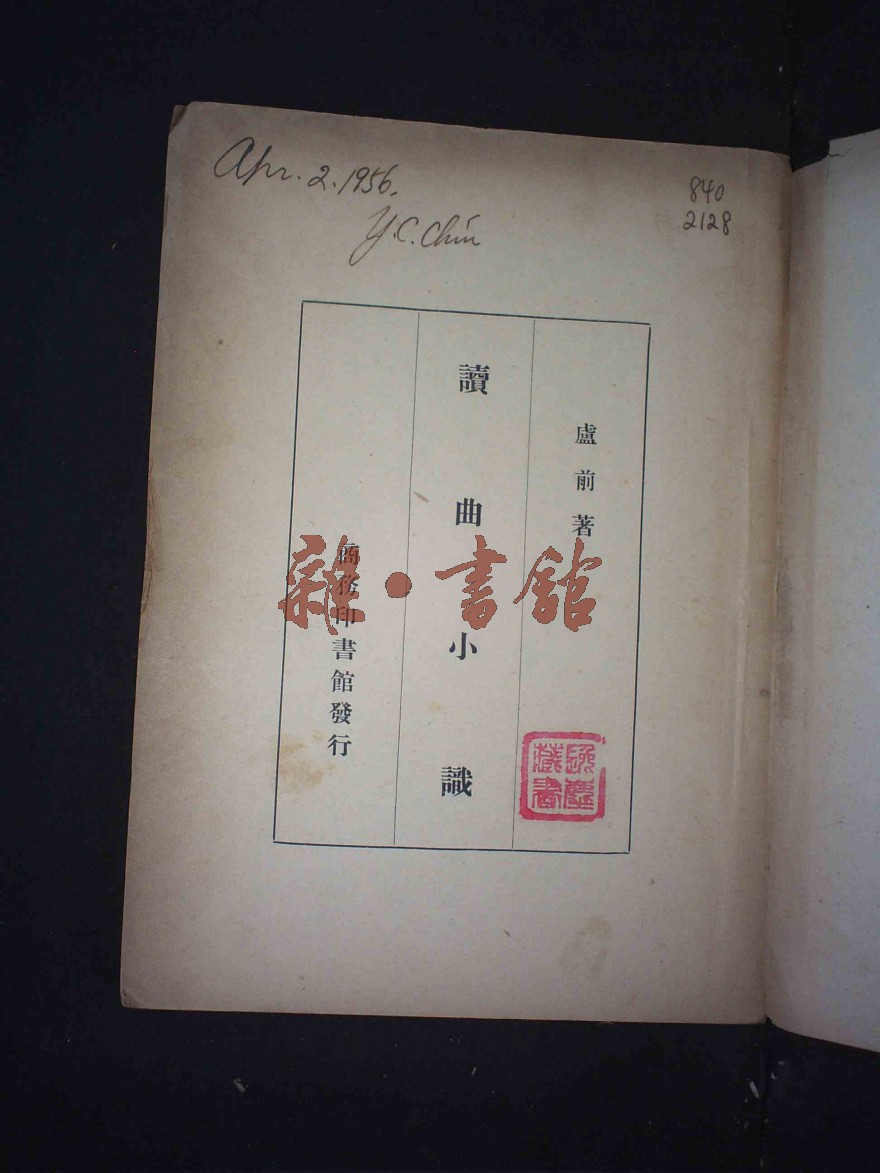 Apr. 2. 1956.
Y.C. Chin
840
2128
盧前著
讀曲小識
商務印書館發行
雜·書館
逸塵
藏書